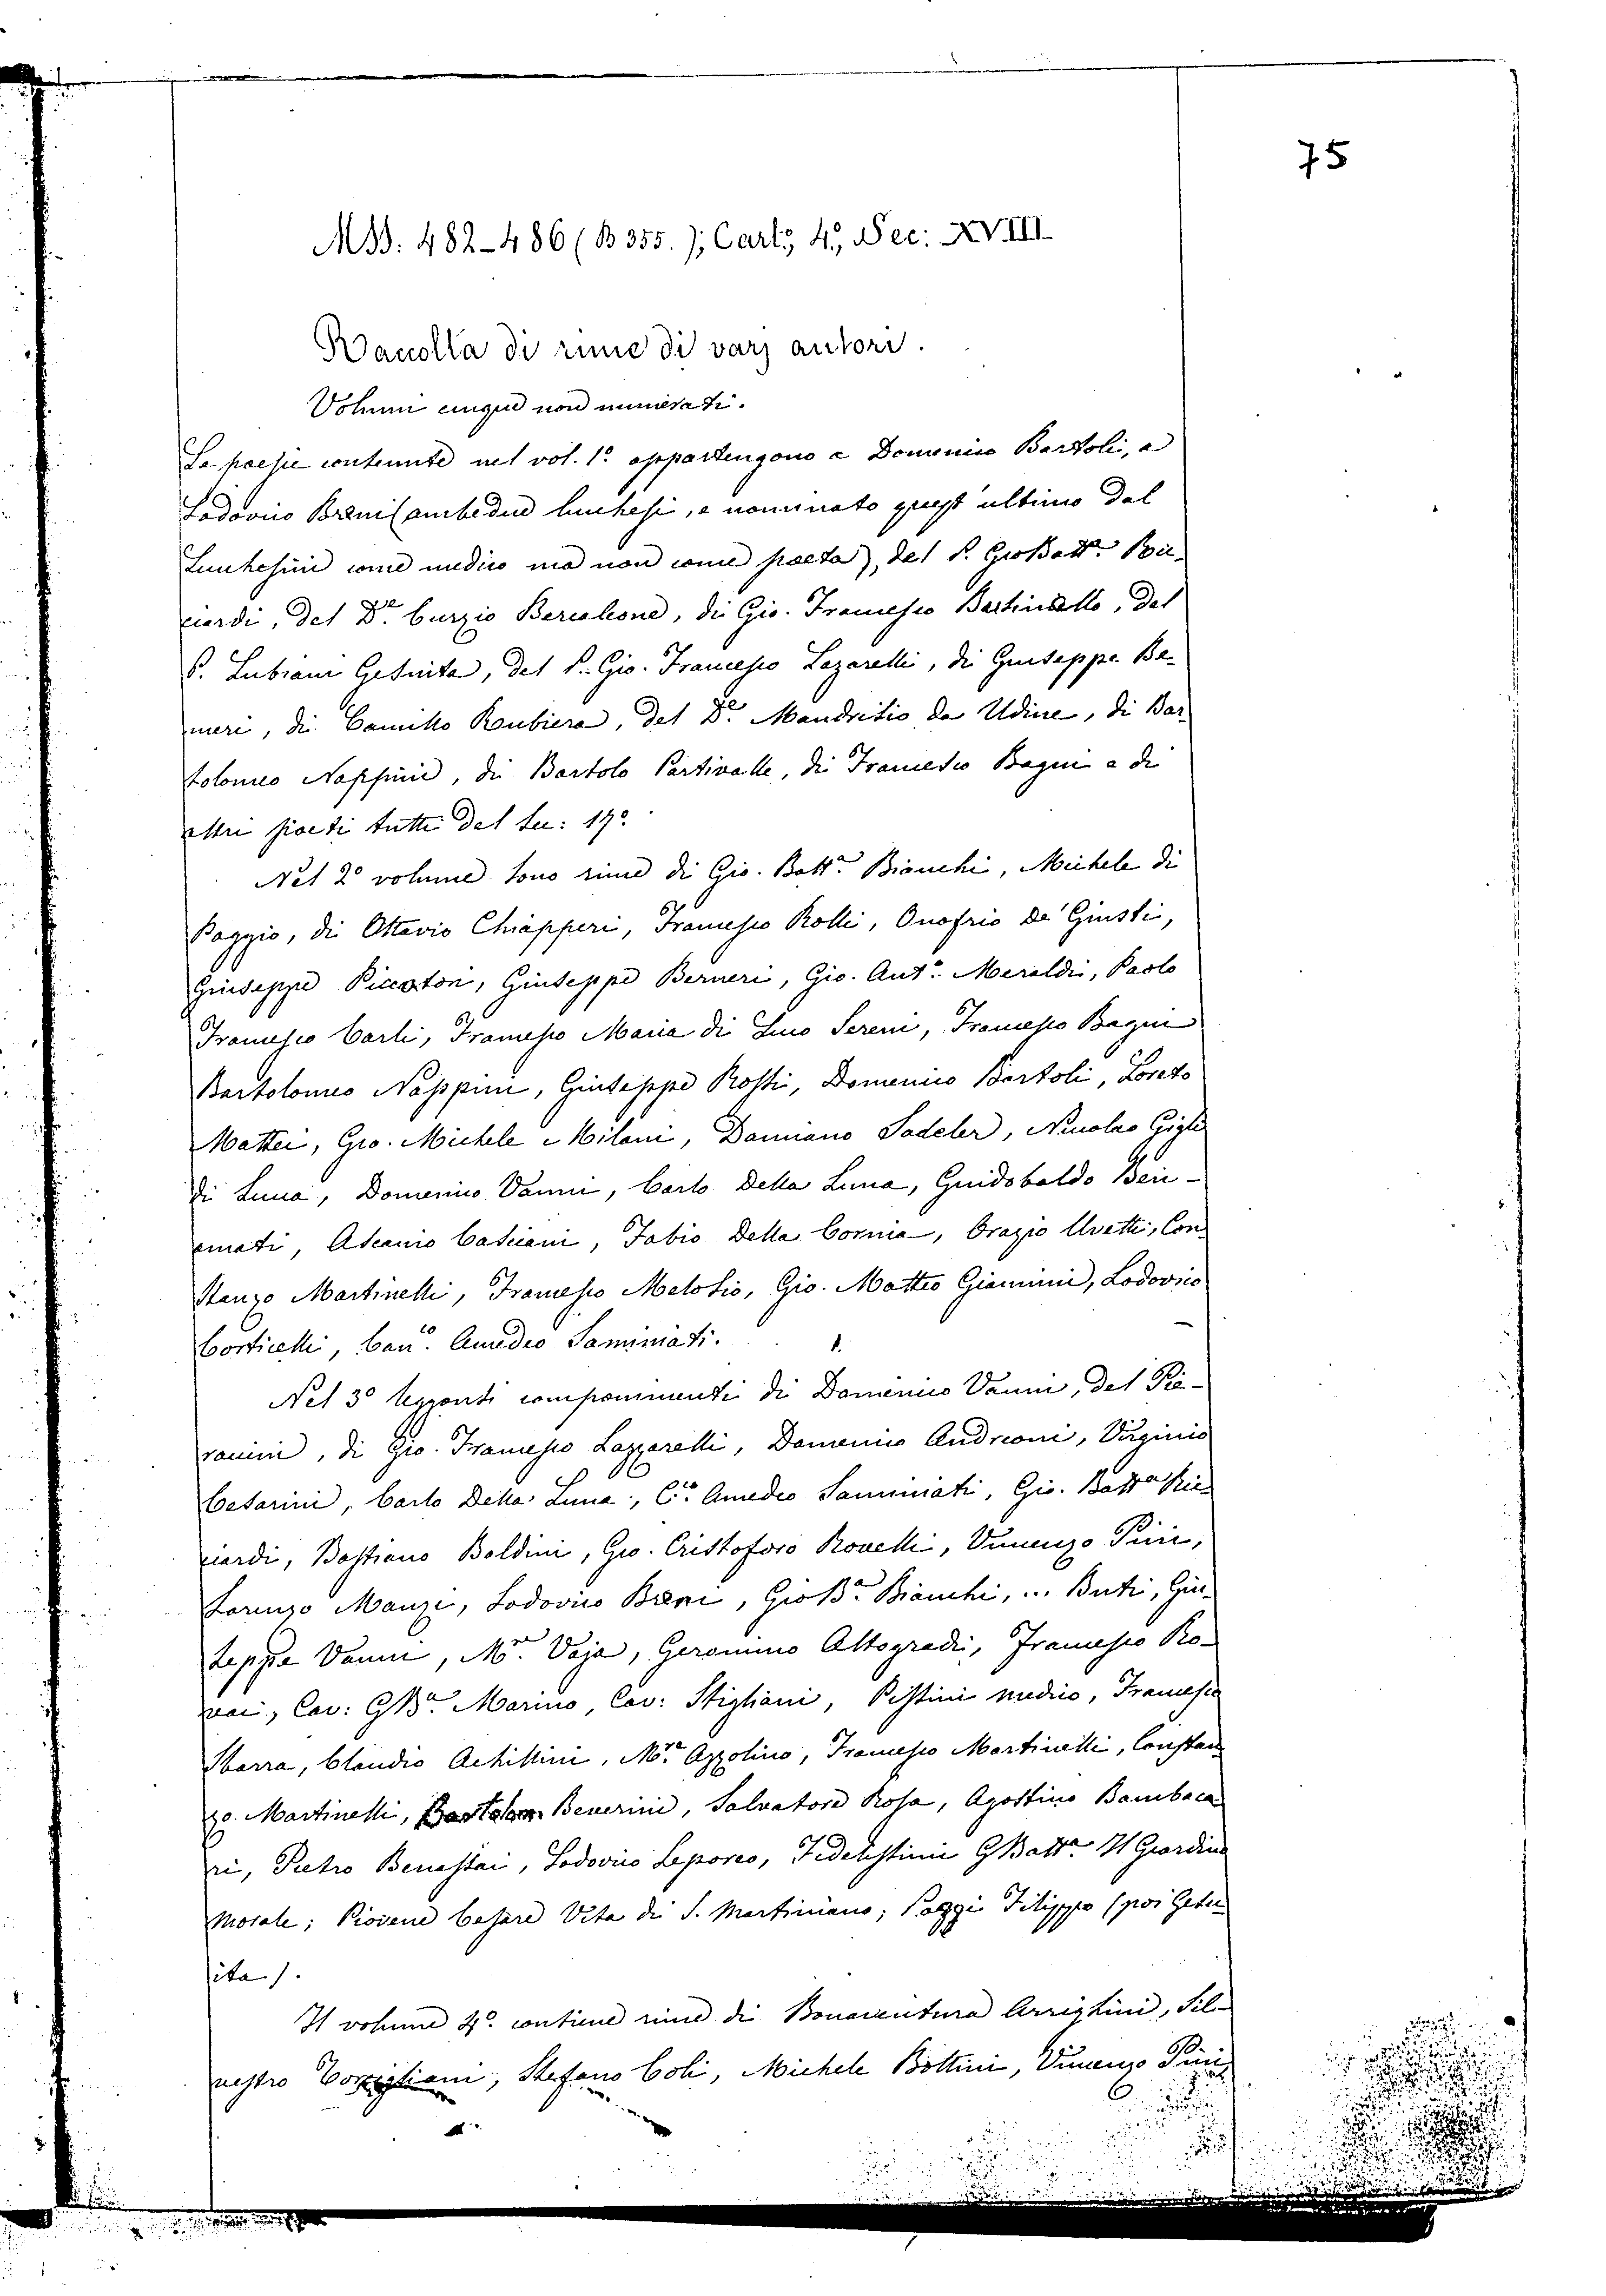 75
MSS. 482-486 (B 355.); Cart:, 4º, Sec: XVIII
Raccolta di rime di varj autori.
Volumi cinque non numerati.
Le poesie contenute nel vol. 1º appartengono a Domenico Bartoli, a
Lodovico Breni (ambedue lucchesi, e nominato quest'ultimo dal
Lucchesini come medico ma non come poeta), del P. Gio Batt.ª Ric-
ciardi, del D.r Curzio Bercaleone, di Gio. Francesco Bartinello, del
P. Lubrani Gesuita, del P. Gio. Francesco Lazarelli, di Giuseppe Be-
rneri, di Camillo Roubiera, del D.r Mandricio da Udine, di Bar-
tolomeo Nappini, di Bartolo Partivalle, di Francesco Bagni e di
altri poeti tutti del sec: 17º
Nel 2º volume sono rime di Gio. Batt.ª Bianchi, Michele di
Poggio, di Ottavio Chiapperi, Francesco Rolli, Onofrio de' Giusti,
Giuseppe Piccaton, Giuseppe Berneri, Gio. Ant.º Meraldi, Paolo
Francesco Carli, Francesco Maria di Luco Sereni, Francesco Bagni
Bartolomeo Nappini, Giuseppe Rossi, Domenico Bartoli, Loreto
Mattei, Gio. Michele Milani, Damiano Sadeler, Nicolao Gigli
di Lucca, Domenico Vanni, Carlo Della Luna, Guidobaldo Ben-
amati, Ascanio Casciani, Fabio Della Cornia, Orazio Uvetti, Con
stanzo Martinelli, Francesco Melosio, Gio. Matteo Giannini, Lodovico
Corticelli, Can.co Amedeo Saminiati.
Nel 3º leggonsi componimenti di Domenico Vanni, del Pie-
ranini, di Gio. Francesco Lazzarelli, Domenico Andreoni, Virginio
Cesarini, Carlo Della Luna, C.co Amedeo Samminiati, Gio. Batta Ric
ciardi, Bastiano Baldini, Gio. Cristoforo Rovelli, Vincenzo Pini,
Lorenzo Manzi, Lodovico Breni, Gio B.ª Bianchi, ... Buti, Giu-
seppe Vanni, M.r Vaja, Geronimo Altogradi, Francesco Ro-
vai, Cav: GB.ª Marino, Cav: Stigliani, Pistini medico, Francesco
Sbarra, Claudio Achillini, M.r Azzolino, Francesco Martinelli, Constan
zo Martinelli, Bartolom. Beverini, Salvatore Rosa, Agostino Bambaca
ri, Pietro Benassai, Lodovico Leporeo, Fidelissimi G Batt.ª Il Giardino
morale; Piovene Cesare Vita di S. Martiniano; Poggi Filippo (poi Gesu
ita).
Il volume 4º contiene rime di Bonaventura Arrighini, Sil-
vestro Consigliani, Stefano Coli, Michele Bottini, Vincenzo Pini,